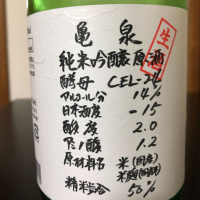 亀泉
生酒
純米吟醸原酒
酵母 CEL-24
アルコール分 14%
日本酒度 -15
酸度 2.0
アミノ酸 1.2
原材料名 米(国産)
米麹(国産米)
精米歩合 50%